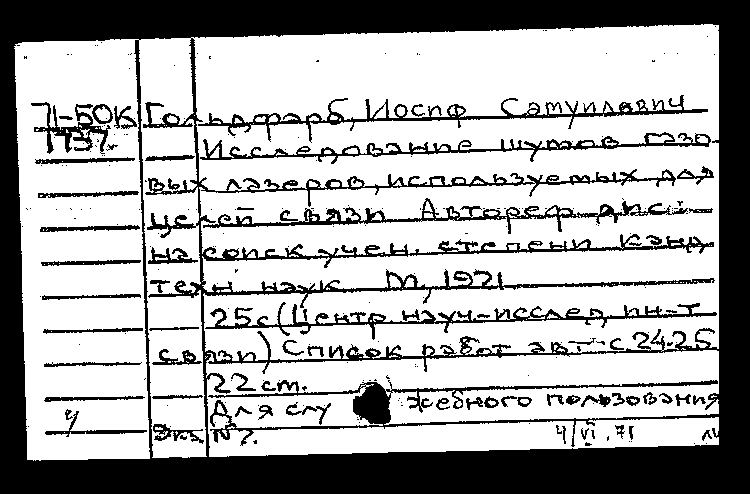 71-БОК Гольдфарб, Иосиф Самуилавич
1737. Исследование шумов газо
вых лазеров, используемых для
целей связи Автореф дис
на соиск учен. степени канд
техн наук М, 1971
25с (Центр науч-исслед ин-т
связи) Список работ авт с. 24-25
22 см.
Для слу жебного пользования
Экз №7.
4/VI.71